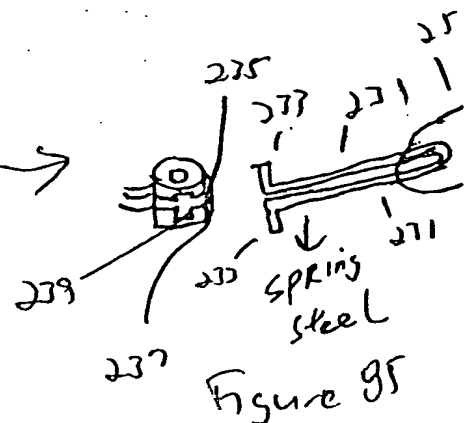 235
25
233
231
239
233
231
spring
steel
237
Figure 95